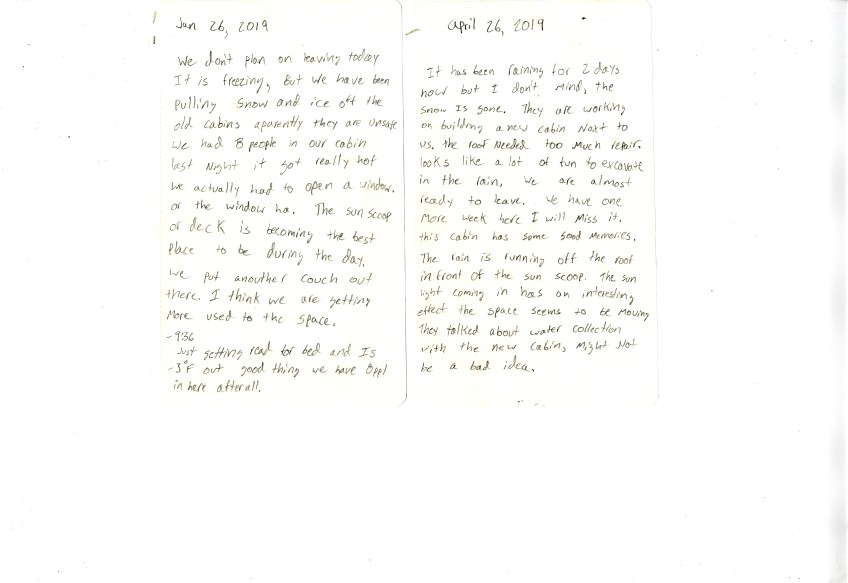 Jan 26, 2019
We don't plan on leaving today
It is freezing, But we have been
pulling snow and ice off the
old cabins aparently they are unsafe
We had 8 people in our cabin
last Night it got really hot
we actually had to open a window.
or the window ha. The sun scoop
or deck is becoming the best
Place to be during the day.
we put anouther couch out
there. I think we are getting
More used to the space.
-9:36
Just getting read for bed and Is
-3°F out good thing we have 8ppl
in here after all.
April 26, 2019
It has been raining for 2 days
now but I don't mind, the
snow Is gone. They are working
on building a new cabin Next to
us. the roof Needed too Much repair.
looks like a lot of fun to excavate
in the rain. We are almost
ready to leave. We have one
More week here I will Miss it.
this cabin has some good Memories.
The rain is running off the roof
in front of the sun scoop. The sun
light coming in has an interesting
effect the space seems to be Moving
They talked about water collection
with the new cabin, Might Not
be a bad idea.